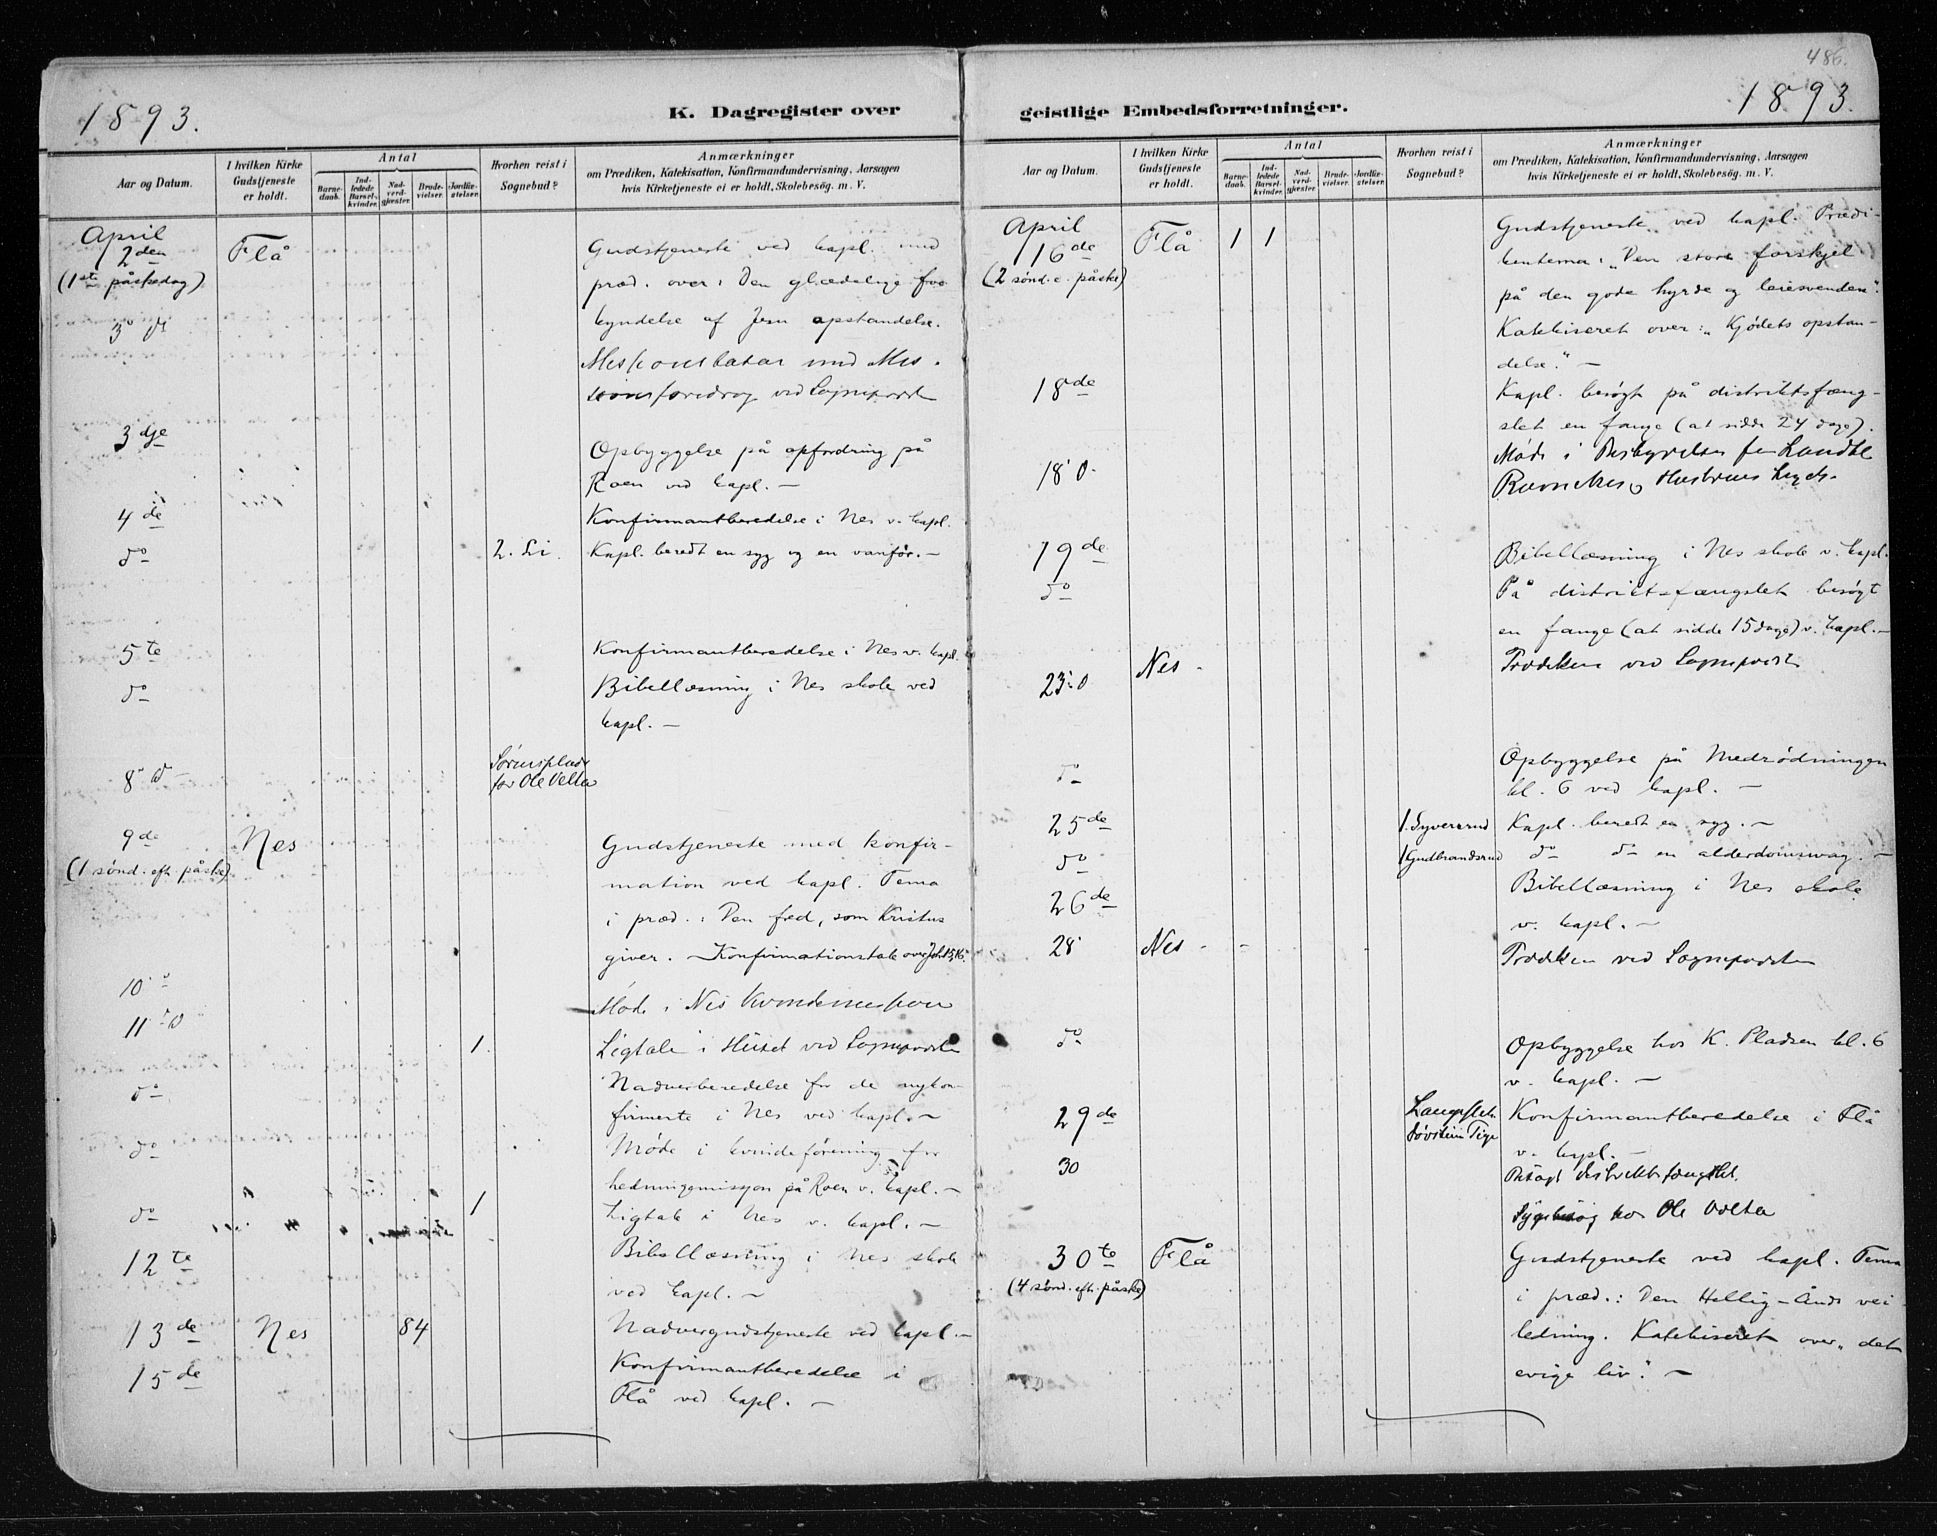 1893.
K. Dagregister over
Aar og Datum.
I hvilken Kirke
Gudstjeneste
er holdt.
Antal
Barne-
daab.
Ind-
ledede
Barsel-
kvinder.
Nad-
verd-
gjæster.
Brude-
vielser.
Jordfæ-
stelser.
Hvorhen reist i
Sognebud?
Anmærkninger
om Prædiken, Katekisation, Konfirmandundervisning, Aarsagen
hvis Kirketjeneste ei er holdt, Skolebesøg. m. V.
April
2den Flå Gudstjeneste ved kapl. med
(1ste påskedag) præd. over: Den glædelige for-
kyndelse af Jesu opstandelse.
med Mis-
sionsforedrag ved Sognepræsten
3dje Opbyggelse på opfordring på
Roen ved kapl. —
4de Konfirmantberedelse i Nes v. kapl.
do 2. Li. Kapl. beredt en syg og en vanfør. —
5te Konfirmantberedelse i Nes v. kapl.
do Bibellæsning i Nes skole ved
kapl. —
8
for Ole Velta
9de Nes Gudstjeneste med konfir-
(1 sønd. eft. påske) mation ved kapl. Tema
i præd.: Den fred, som Kristus
giver. — Konfirmationstale over Joh. 15,16.
10 Møde i Nes
11 1. Ligtale i Huset ved Sognepræsten
do Nadverberedelse for de nykon-
firmerte i Nes ved kapl. —
do Møde i kvindeforening for
hedningemissjon på Roen v. kapl. —
do 1 Ligtale i Nes v. kapl. —
12te Bibellæsning i Nes skole
ved kapl. —
13de Nes 84 Nadvergudstjeneste ved kapl. —
15de Konfirmantberedelse i
Flå ved kapl. —
486.
1893.
geistlige Embedsforretninger.
Aar og Datum.
I hvilken Kirke
Gudstjeneste
er holdt.
Antal
Barne-
daab.
Ind-
ledede
Barsel-
kvinder.
Nad-
verd-
gjæster.
Brude-
vielser.
Jordfæ-
stelser.
Hvorhen reist i
Sognebud?
Anmærkninger
om Prædiken, Katekisation, Konfirmandundervisning, Aarsagen
hvis Kirketjeneste ei er holdt, Skolebesøg. m. V.
April
16de Flå 1 1 Gudstjeneste ved kapl. Prædi-
(2 sønd. e. påske) kentema: „Den store forskjel
på den gode hyrde og leiesvenden".
Katekiseret over: „Kjødets opstan-
delse." —
18de Kapl. besøgt på distriktsfæng-
slet en fange (at sidde 24 dage).
18 Møde i Bestyrelsen for
19de Bibellæsning i Nes skole v. kapl.
do På distriktsfængslet besøgt
en fange (at sidde 15 dage) v. kapl. —
23 Nes Prædiken ved Sognepræsten
do Opbyggelse på Medrødningen
kl. 6 ved kapl. —
25de 1. Syversrud Kapl. beredt en syg. —
do 1 Gudbrandsrud do do en alderdomssvag. —
26de Bibellæsning i Nes skole
v. kapl. —
28 Nes Prædiken ved Sognepræsten
do Opbyggelse hos K. Pladsen kl. 6
v. kapl. —
29de Konfirmantberedelse i Flå
v. kapl. —
30 Besøgt distriktsfængslet.
Sygebesøg hos Ole Velta
30te Flå Gudstjeneste ved kapl. Tema
(4 sønd. eft. påske) i præd.: Den Hellig-Ånds vei-
ledning. Katekiseret over „det
evige liv". —